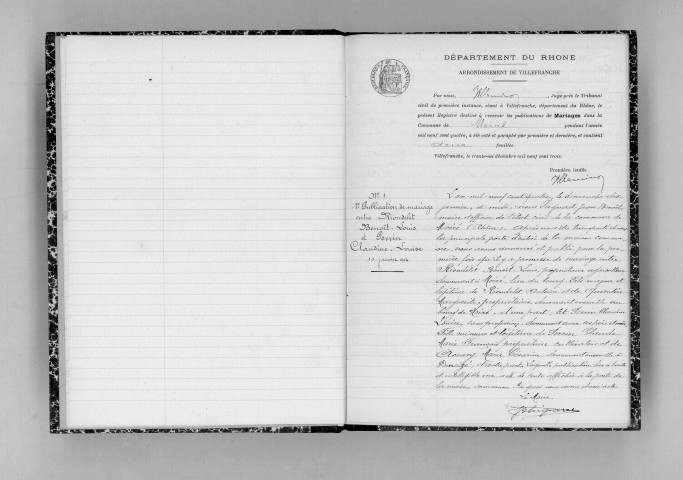 DÉPARTEMENT DU RHONE
ARRONDISSEMENT DE VILLEFRANCHE
Par nous, Juge près le Tribunal
civil de première instance, séant à Villefranche, département du Rhône, le
présent Registre destiné à recevoir les publications de Mariages dans la
Commune de Moiré pendant l'année
mil neuf cent quatre, a été coté et paraphé par première et dernière, et contient
deux feuilles
Villefranche, le trente-un décembre mil neuf cent trois.
Première feuille
N° 1
1e Publication de mariage
entre Riondelet
Benoît-Louis
et Perrin
Claudine-Louise
10 janvier 1904
L'an mil neuf cent quatre, le dimanche dix
janvier, à midi, nous Jean
maire officier de l'état civil de la commune de
Moiré (Rhône), après nous être transporté devant
la principale porte d'entrée de la maison commu-
ne, avons annoncé et publié pour la pre-
mière fois qu'il y a promesse de mariage entre
Riondelet Benoît Louis, propriétaire cultivateur
demeurant à Moiré, lieu du bourg, fils majeur et
légitime de Riondelet Antoine et de
Marguerite, propriétaires, demeurant ensemble au
bourg de Moiré, d'une part; Et Perrin Claudine
Louise, sans profession, demeurant avec ses père et mère
fille mineure et légitime de Perrin Claude
Marie François propriétaire cultivateur et de
Marie demeurant ensemble à
d'autre part. Laquelle publication lue à haute
et intelligible voix, a été de suite affichée à la porte de
la maison commune. De quoi nous avons dressé acte.
Le Maire,